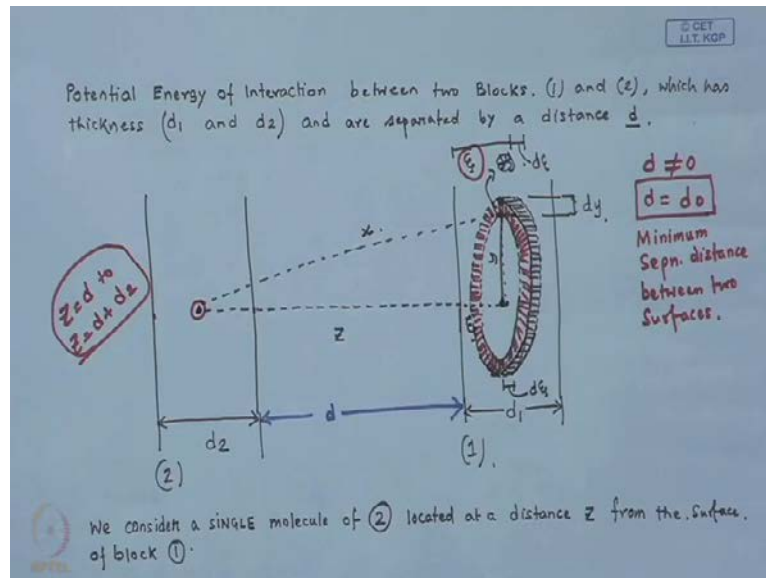 © CET
I.I.T. KGP
Potential Energy of Interaction between two Blocks. (1) and (2), which has
thickness (d1 and d2) and are separated by a distance d.
ξ
dξ
d ≠ 0
d = d0
Minimum
Sepn. distance
between two
Surfaces.
dy.
x.
y
z = d to
z = d + d2
z
dξ
d2
d
d1
(2)
(1).
We consider a SINGLE molecule of ② located at a distance z from the. Surface.
of block ①.
NPTEL